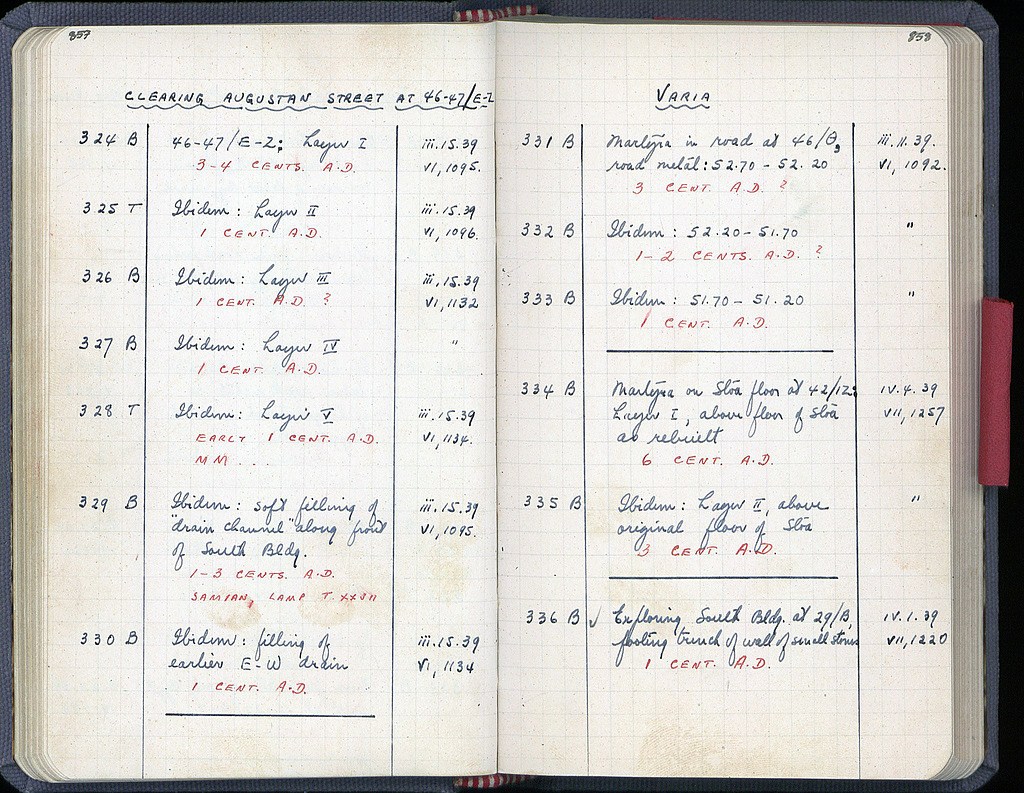 857
CLEARING AUGUSTAN STREET AT 46-47/E-Z
324 B 46-47/E-Z; Layer I iii.15.39
3-4 CENTS. A.D. VI, 1095.
325 T Ibidem: Layer II iii.15.39
1 CENT. A.D. VI, 1096.
326 B Ibidem: Layer III iii.15.39
1 CENT. A.D. ? VI, 1132
327 B Ibidem: Layer IV "
1 CENT. A.D.
328 T Ibidem: Layer V iii.15.39
EARLY 1 CENT. A.D. VI, 1134.
MM...
329 B Ibidem: soft filling of iii.15.39
"drain channel" along front VI, 1095.
of South Bldg.
1-3 CENTS. A.D.
SAMIAN, LAMP T. XXVII
330 B Ibidem: filling of iii.15.39
earlier E-W drain VI, 1134
1 CENT. A.D.
858
VARIA
331 B Martyria in road at 46/Θ, iii.11.39.
road metal: 52.70 - 52.20 VI, 1092.
3 CENT. A.D. ?
332 B Ibidem: 52.20 - 51.70 "
1-2 CENTS. A.D. ?
333 B Ibidem: 51.70 - 51.20 "
1 CENT. A.D.
334 B Martyria on Stoa floor at 42/IZ: IV.4.39
Layer I, above floor of Stoa VII, 1257
as rebuilt
6 CENT. A.D.
335 B Ibidem: Layer II, above "
original floor of Stoa
3 CENT. A.D.
336 B ✓ Exploring South Bldg. at 29/B, IV.1.39
footing trench of wall of small stones VII, 1220
1 CENT. A.D.